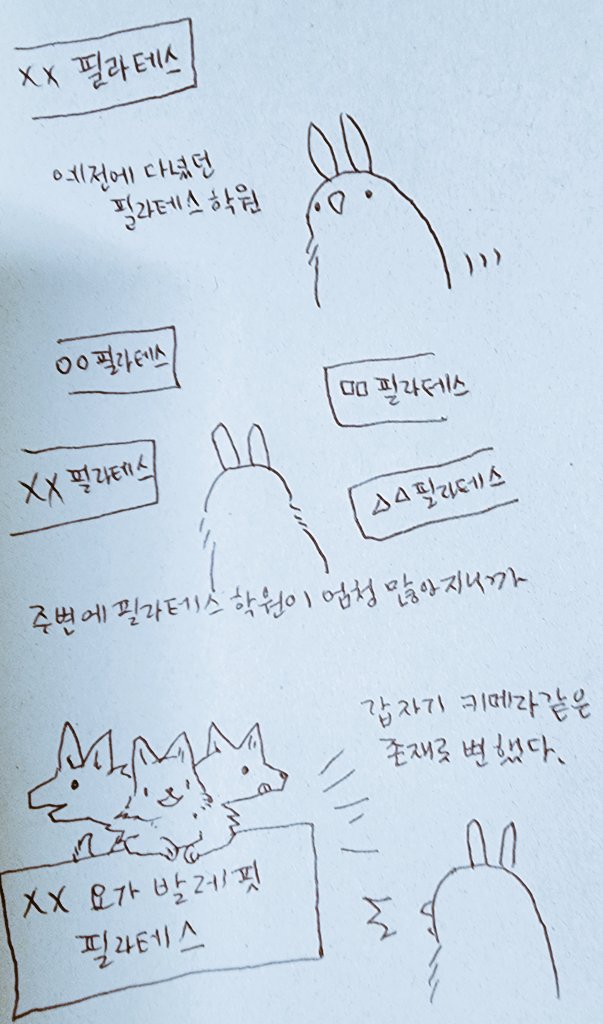 XX 필라테스
예전에 다녔던
필라테스 학원
OO 필라테스
□□ 필라테스
XX 필라테스
△△ 필라테스
주변에 필라테스 학원이 엄청 많아지니까
갑자기 키메라같은
존재로 변했다.
XX 요가 발레핏
필라테스